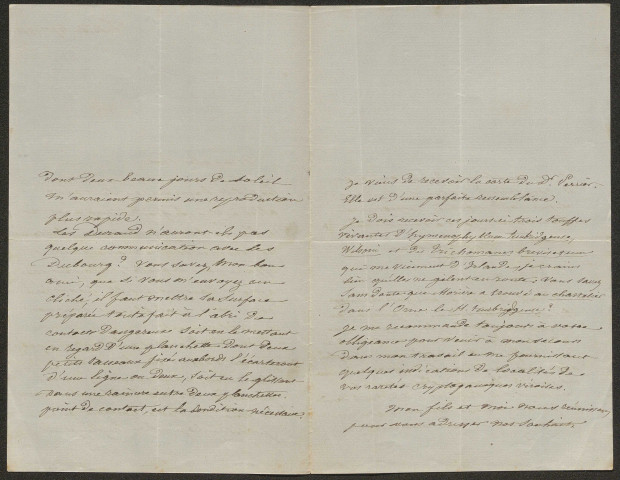 dont deux beaux jours de soleil
m'auraient permis une reproduction
plus rapide.
Les Durand n'auront-ils pas
quelque communication avec les
Dubourg? Vous savez, mon bon
ami, que si vous m'envoyez un
cliché, il faut mettre la surface
préparée tout à fait à l'abri de
contacts dangereux soit en le mettant
en regard d'une planchette dont deux
petits taneaux fixés aux bords l'écarteront
d'une ligne ou deux, soit en le glissant
dans une rainure entre deux planchettes.
point de contact, est la condition nécessaire.
Je viens de recevoir la carte du Dr. Perrier.
Elle est d'une parfaite ressemblance.
Je dois recevoir ces jours-ci trois touffes
vivantes d'Hymenophyllum tunbridgense,
Wilsoni et du Trichomanes brevisetum
qui me viennent d'Irlande; je crains
bien qu'elles ne gèlent en route. Vous savez
sans doute que Morière a trouvé au
dans l'Orne le H. tunbridgense?
Je me recommande toujours à votre
obligeance pour venir à mon secours
dans mon travail en me fournissant
quelques indications de localités de
vos raretés cryptogamiques viroises.
Mon fils et moi nous réunissons
pour vous adresser nos souhaits